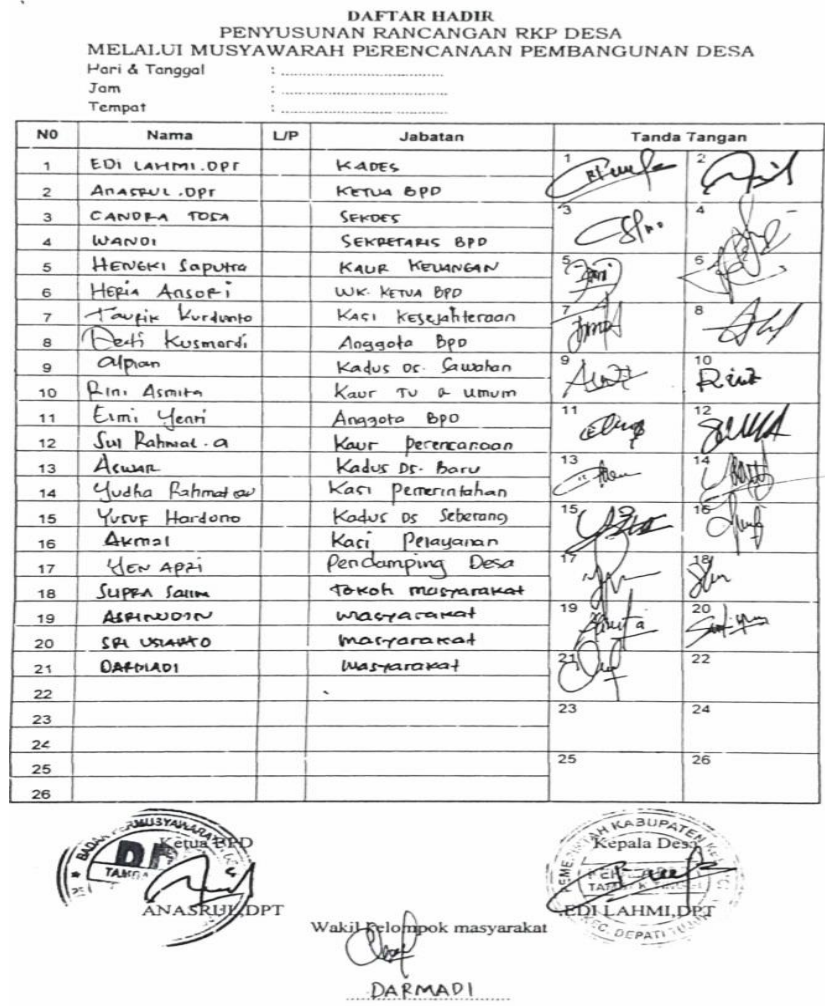 DAFTAR HADIR
PENYUSUNAN RANCANGAN RKP DESA
MELALUI MUSYAWARAH PERENCANAAN PEMBANGUNAN DESA
Hari & Tanggal :
Jam :
Tempat :
NO Nama L/P Jabatan Tanda Tangan
1 EDI LAHMI.DPT KADES 1 2
2 ANASRUL.DPT KETUA BPD
3 CANDRA TOSA SEKDES 3 4
4 WANDI SEKRETARIS BPD
5 HENGKI Saputra KAUR KEUANGAN 5 6
6 HERIA ANSORI WK. KETUA BPD
7 Taufik Kurdianto KASI Kesejahteraan 7 8
8 Dedi Kusmardi Anggota BPD
9 Alpian Kadus Ds. Sawahan 9 10
10 Rini Asmita Kaur TU & Umum
11 Eimi Yenri Anggota BPD 11 12
12 Sul Rahmat.a Kaur perencanaan
13 Aswan Kadus Ds. Baru 13 14
14 Yudha Rahmat Kasi Pemerintahan
15 Yusuf Hardono Kadus Ds Seberang 15 16
16 Akmal Kasi Pelayanan
17 YEN APRI Pendamping Desa 17 18
18 SUPRA SALIM TOKOH masyarakat
19 ASRINUDIN masyarakat 19 20
20 SRI USIANTO masyarakat
21 DARMADI masyarakat 21 22
22
23 23 24
24
25 25 26
26
Ketua BPD Kepala Desa
ANASRUL,DPT EDI LAHMI,DPT
Wakil kelompok masyarakat
DARMADI